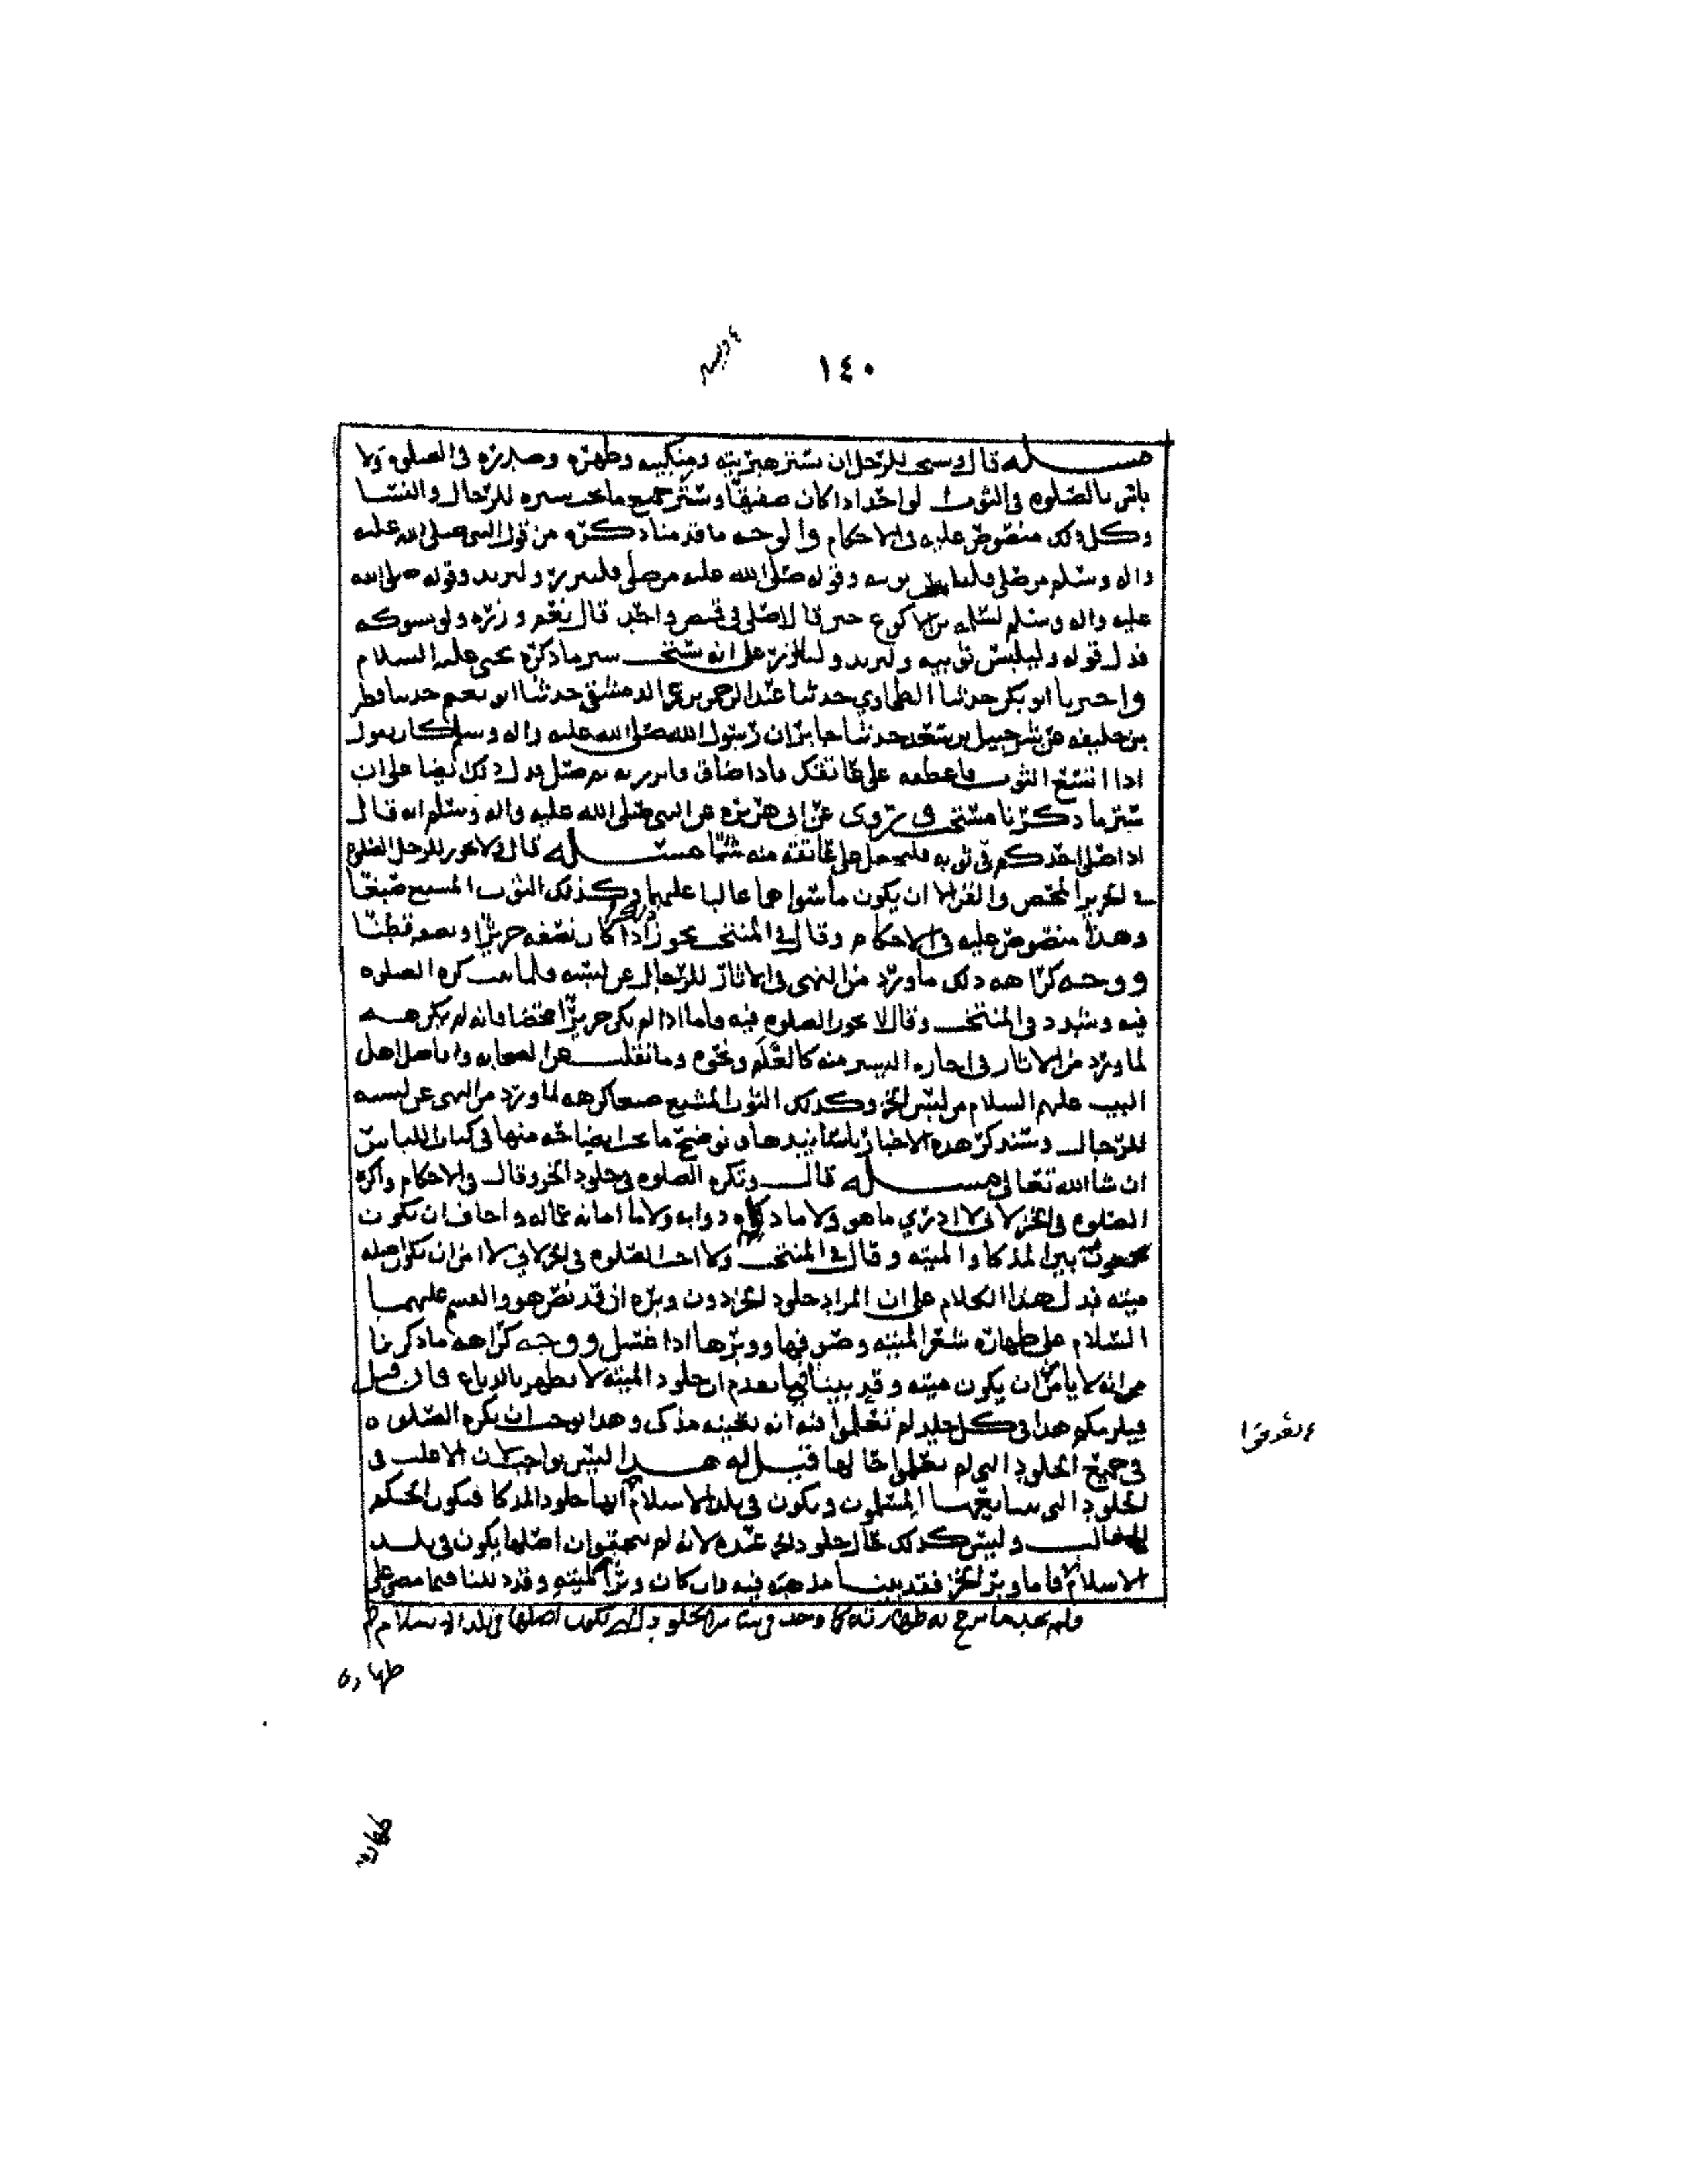 ١٤٠
مسـله قال ويستحب للرجل ان يستر هبريته ومنكبيه وظهره وصدره في الصلوه ولا
باس بالصلوه في الثوب الواحد اذا كان صفيقا وستر جميع ما يجب ستره للرجال والنسا
وكل ذلك منصوص عليه في الاحكام والوجه ما قدمنا ذكره من قول النبي صلى الله عليه
واله وسلم من صلى فليلبس ثوبيه وقوله صلى الله عليه من صلى فليتزر وليرتد وقوله صلى الله
عليه واله وسلم لسلمه بن الاكوع حين قال اصلي في قميص واحد قال نعم وزره ولو بشوكه
فدل قوله وليلبس ثوبيه وليرتد وليتزر على انه يستحب ستر ما ذكره يحيى عليه السلام
واخبرنا ابو بكر حدثنا الطحاوي حدثنا عبد الرحمن بن عمر الدمشقي حدثنا ابو نعيم حدثنا فطر
بن خليفه عن شرحبيل بن سعد حدثنا جابر ان رسول الله صلى الله عليه واله وسلم كان يقول
اذا اتسع الثوب فاعطفه على عاتقك فاذا ضاق فاتزر به ثم صل فدل ذلك ايضا على ان
ستر ما ذكرنا مستحب وروى عن ابي هريره عن النبي صلى الله عليه واله وسلم انه قال
اذا صلى احدكم في ثوبه فليجعل على عاتقه منه شيئا مسـله قال ولا يجوز للرجل الصلوه
في الحرير المحض والقز الا ان يكون ما سواهما غالبا عليهما وكذلك الثوب المشبع صبغا
وهذا منصوص عليه في الاحكام وقال في المنتخب يجوز اذا كان نصفه حريرا ونصفه قطنا
ووجه كراهه ذلك ما ورد من النهي في الاثار للرجال عن لبسه فلذلك كره الصلوه
فيه وشدد في المنتخب وقال لا يجوز الصلوه فيه واما اذا لم يكن حريرا محضا فانه لم يكرهه
لما ورد من الاثار في اجازه اليسير منه كالعلم ونحوه وما نقلت عن الصحابه وافاضل اهل
البيت عليهم السلام من لبس الخز وكذلك الثوب المشبع صبغا كرهه لما ورد من النهي عن لبسه
للرجال وسنذكر هذه الاخبار باسانيدها ونوضح ما يجب ايضاحه منها في كتاب اللباس
ان شا الله تعالى مسـله قال وتكره الصلوه في جلود الخز وقال في الاحكام واكره
الصلوه في الخز لاني لا ادري ما هو ولا ما ذكاه دوابه ولا ما امانه عماله واخاف ان يكون
يجمعون بين المذكا والميته وقال في المنتخب ولا احب الصلوه في الخز لاني لا امن ان يكون اصله
ميته فدل هذا الكلام على ان المراد جلود الخز دون وبره اذ قد نص هو والقسم عليهما
السلام على طهاره شعر الميته وصوفها ووبرها اذا غسل ووجه كراهه ما ذكرنا
من انه لا يامن ان يكون ميته وقد بينا فيما تقدم ان جلود الميته لا تطهر بالدباغ فان قيل
فيلزمكم هذا في كل جلد لم تعلموا منه انه بعينه مذكى وهذا يوجب ان يكره الصلوه
في جميع الجلود التي لم تعلموا حالها قيل له هـذا ليس بواجب لان الاغلب في
الجلود التي يتبايعها المسلمون ويكون في بلد الاسلام انها جلود المذكا فيكون الحكم
للغالب وليس كذلك حال جلود الخز عنده لانه لم يتحقق ان اصلها يكون في بلد
الاسلام فاما وبر الخز فقد بينا مذهبه فيه وان كان وبرا لميته وقد دللنا فيما مضى على
طهارته